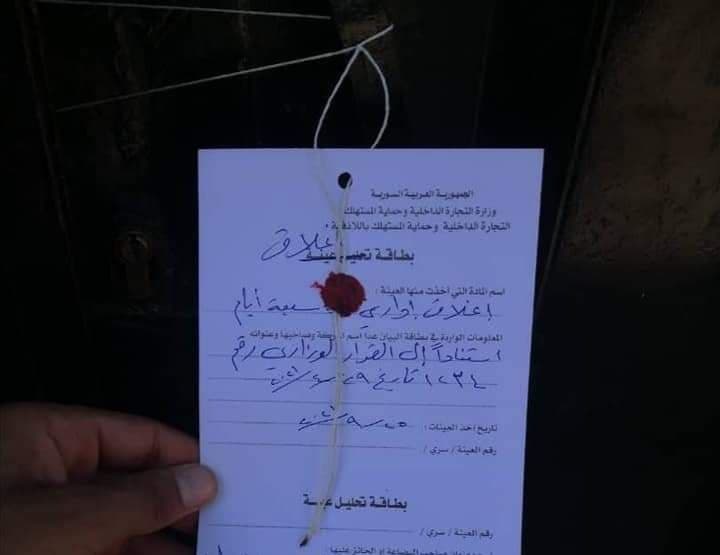 الجمهورية العربية السورية
وزارة التجارة الداخلية وحماية المستهلك
التجارة الداخلية وحماية المستهلك باللاذقية
إغلاق
بطاقة تحليل عينة
اسم المادة التي أخذت منها العينة :
إغلاق إداري سبعة أيام
المعلومات الواردة في بطاقة البيان عدا اسم وصاحبها وعنوانه
استناداً إلى القرار الوزاري رقم
١٢٣٤ تاريخ
تاريخ اخذ العينات :
رقم العينة / سري /
بطاقة تحليل عينة
رقم العينة / سري /